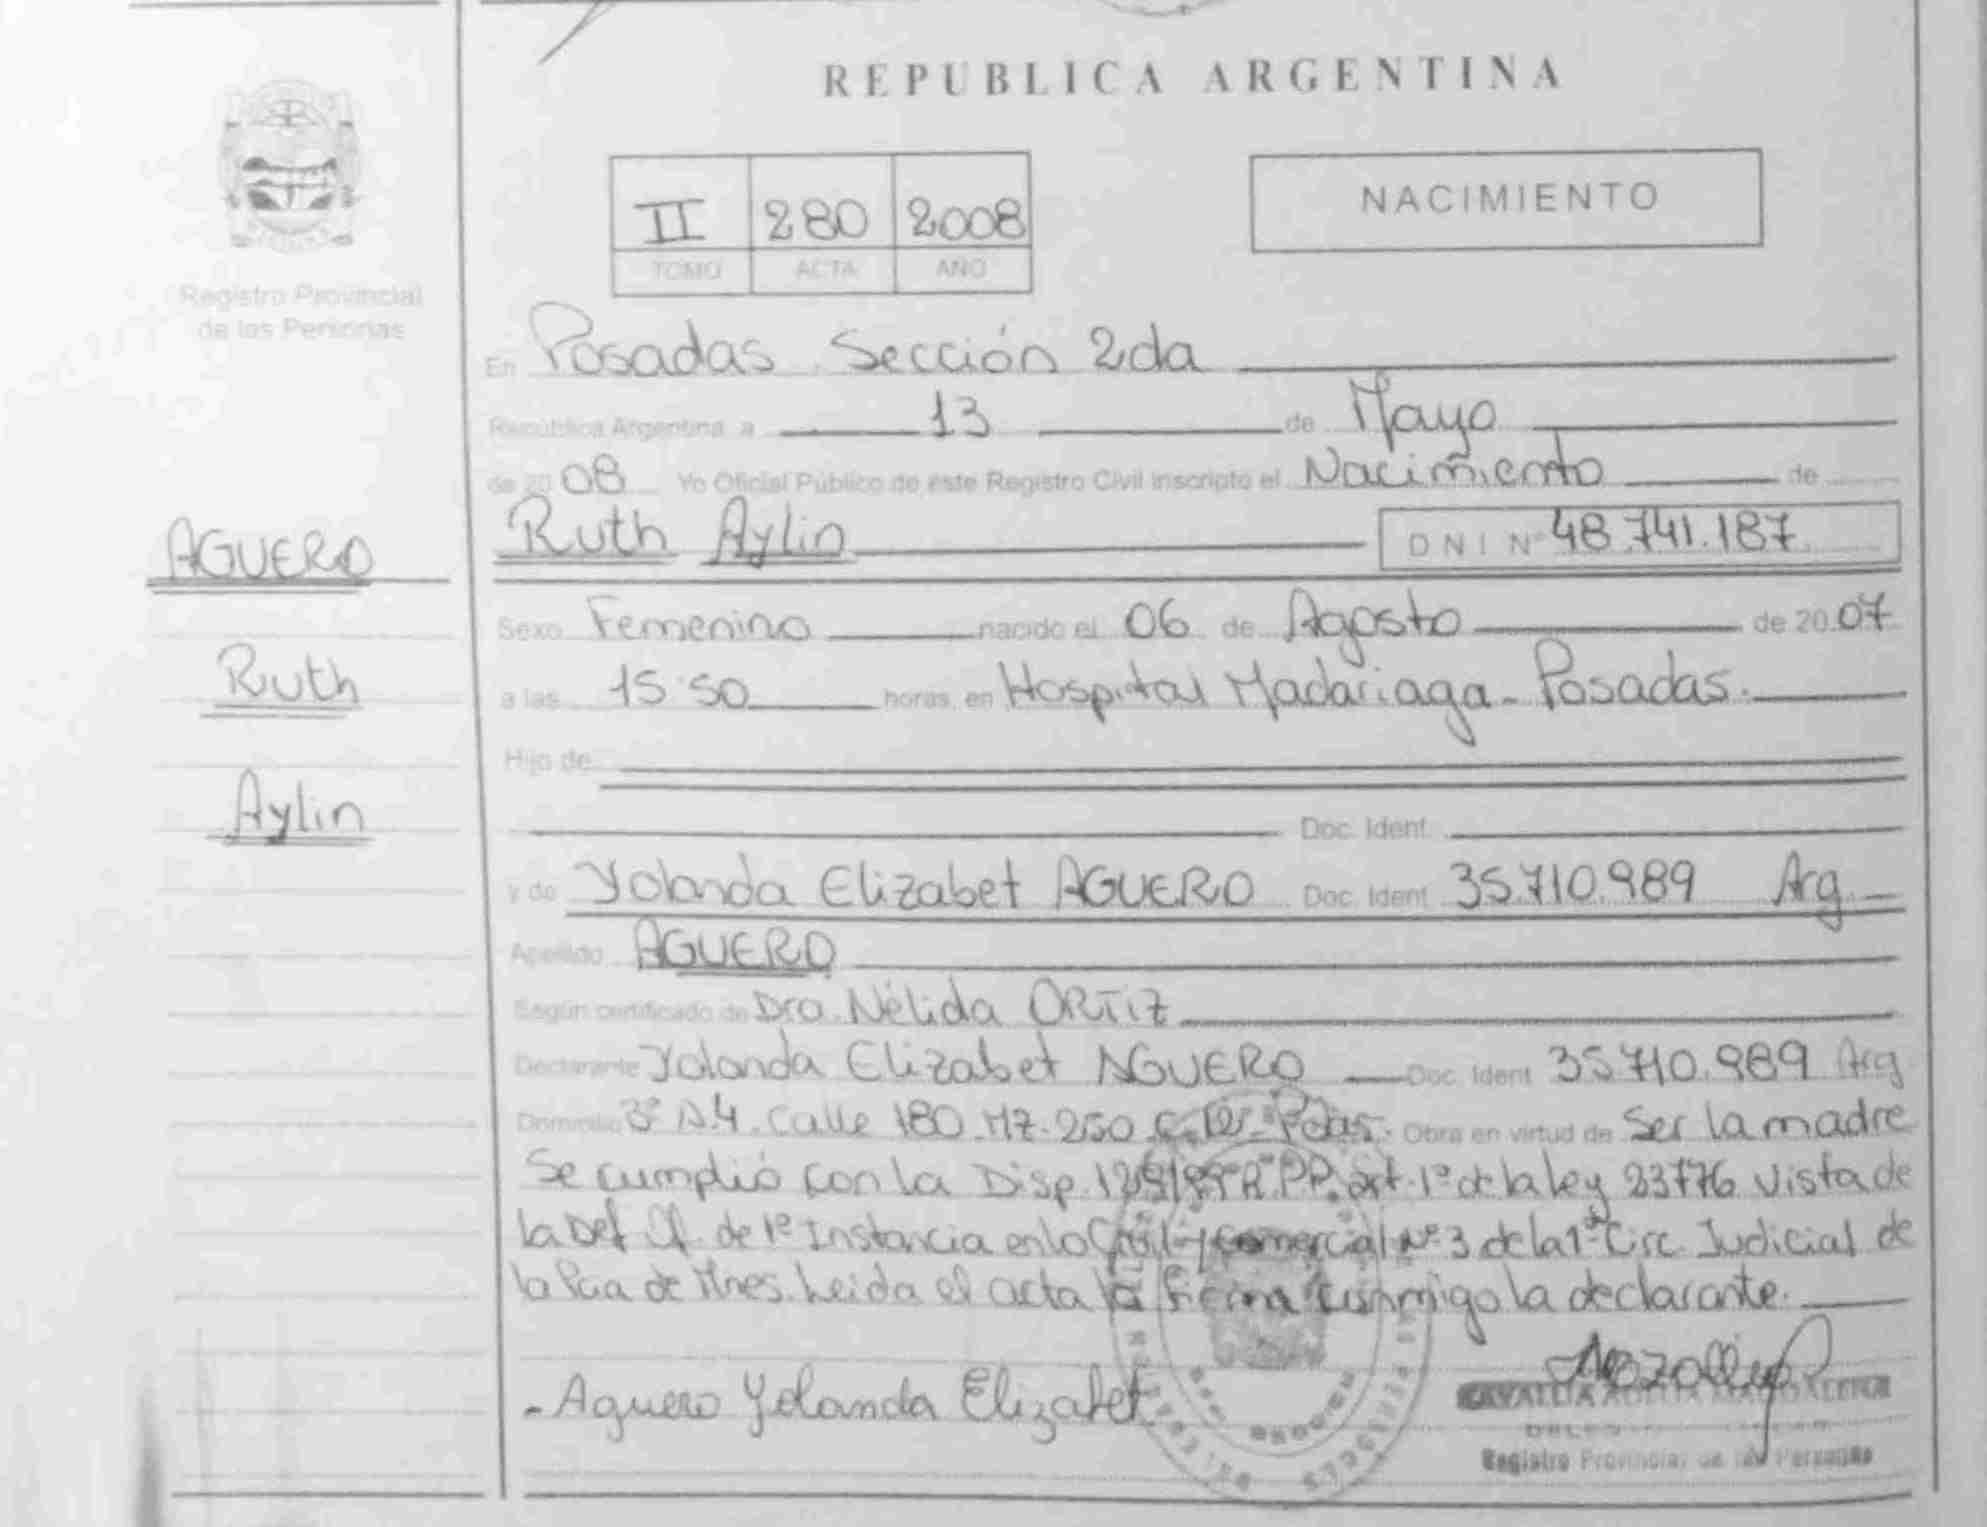 REPUBLICA ARGENTINA
II 280 2008
TOMO ACTA AÑO
NACIMIENTO
Registro Provincial
de las Personas
En Posadas Sección 2da
República Argentina a 13 de Mayo
de 20 08 Yo Oficial Público de este Registro Civil inscripto el Nacimiento de
AGUERO
Ruth Aylin DNI Nº 48.741.187
Sexo Femenino nacido el 06 de Agosto de 20 07
Ruth
a las 15:50 horas, en Hospital Madariaga - Posadas.
Hijo de
Aylin
Doc. Ident.
y de Yolanda Elizabet AGUERO Doc. Ident. 35.710.989 Arg.
Apellido AGUERO
Según certificado de Dra. Nélida ORTIZ
Declarante Yolanda Elizabet AGUERO Doc. Ident. 35.710.989 Arg
Domicilio Calle 180 Mz. 250 Pdas. Obra en virtud de Ser la madre
Se cumplió con la Disp. art. 1º de la ley 23776 Vista de
la Def. Of. de 1º Instancia en lo Civil y Comercial Nº 3 de la 1º Circ. Judicial de
la Pcia de Mnes. Leida el acta la firma conmigo la declarante.
- Aguero Yolanda Elizabet
Registro Provincial de las Personas